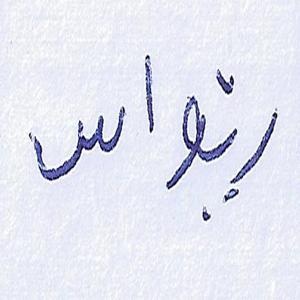 ریواس